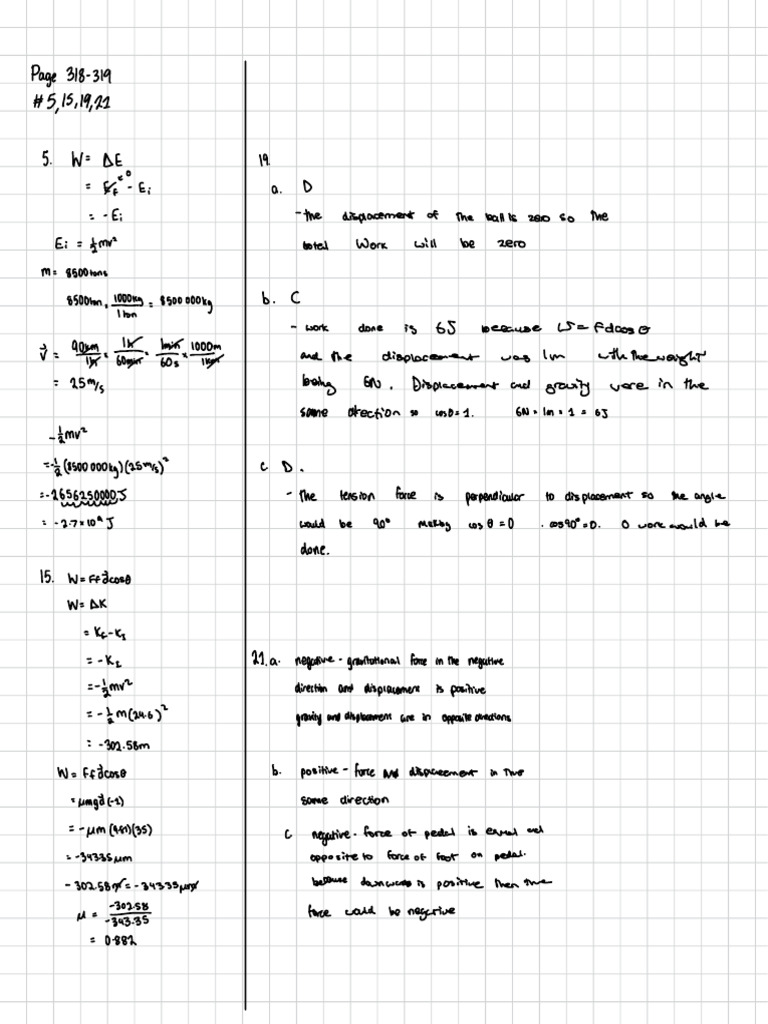 Page 318-319
#5,15,19,21
5. W = ΔE
= E_f^{=0} - E_i
= -E_i
E_i = ½mv²
m = 8500tons
8500ton × 1000kg/1ton = 8500 000kg
v⃗ = 90km/1h × 1h/60min × 1min/60s × 1000m/1km
= 25 m/s
-½mv²
= -½(8500 000kg)(25m/s)²
= -2656250000J
= -2.7×10⁹ J
15. W = Ff d⃗cosθ
W = ΔK
= K_f - K_i
= -K_i
= -½mv²
= -½m(24.6)²
= -302.58m
W = Ff d⃗cosθ
= μmgd⃗(-1)
= -μm(9.81)(35)
= -343.35μm
-302.58m = -343.35μm
μ = -302.58/-343.35
= 0.882
19.
a. D
- the displacement of the ball is zero so the
total Work will be zero
b. C
- work done is 6J because W = Fdcosθ
and the displacement was 1m with the weight
being 6N. Displacement and gravity were in the
same direction so cosθ=1. 6N × 1m × 1 = 6J
c D.
- The tension force is perpendicular to displacement so the angle
would be 90° making cosθ=0 . cos90°=0. 0 work would be
done.
21. a. negative - gravitational force in the negative
direction and displacement is positive
gravity and displacement are in opposite directions
b. positive - force and displacement in the
same direction
c negative - force of pedal is equal and
opposite to force of foot on pedal.
because downwards is positive then the
force would be negative